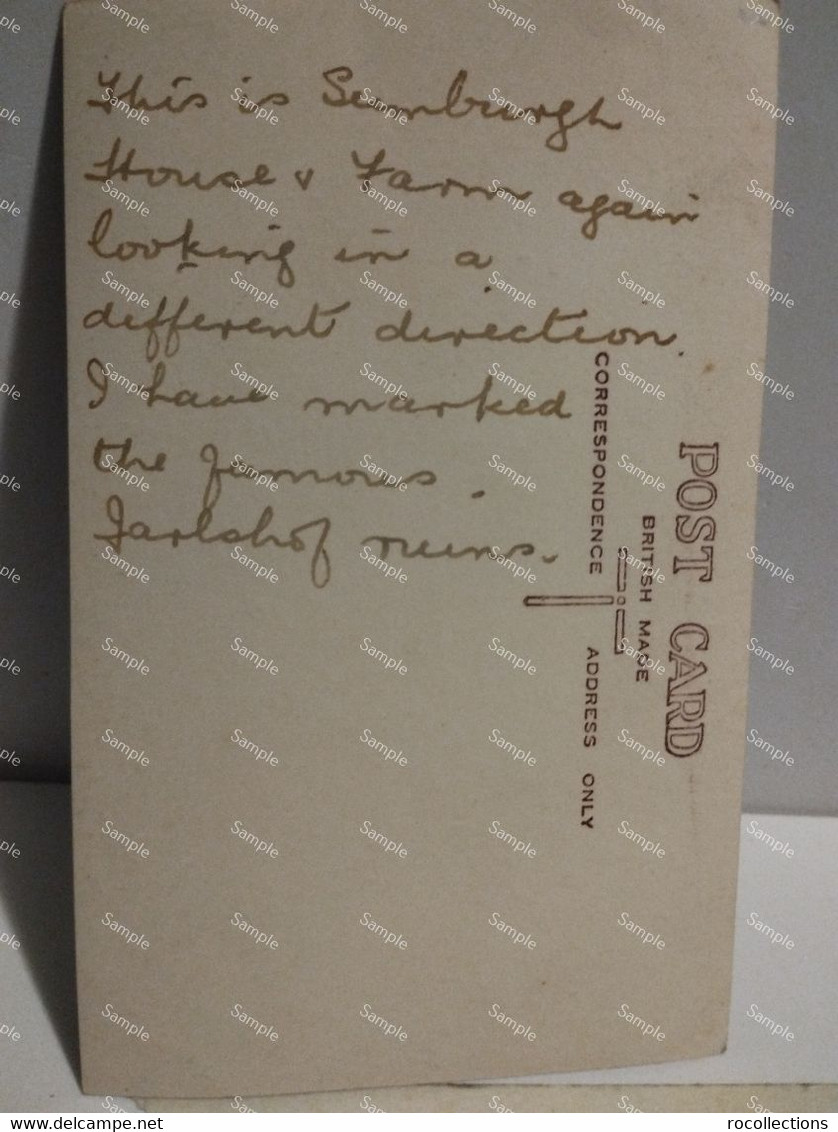 This is Sumburgh
House & Farm again
looking in a
different direction.
I have marked
the famous
Jarlshof ruins.
POST CARD
BRITISH MADE
CORRESPONDENCE
ADDRESS ONLY
www.delcampe.net
rocollections